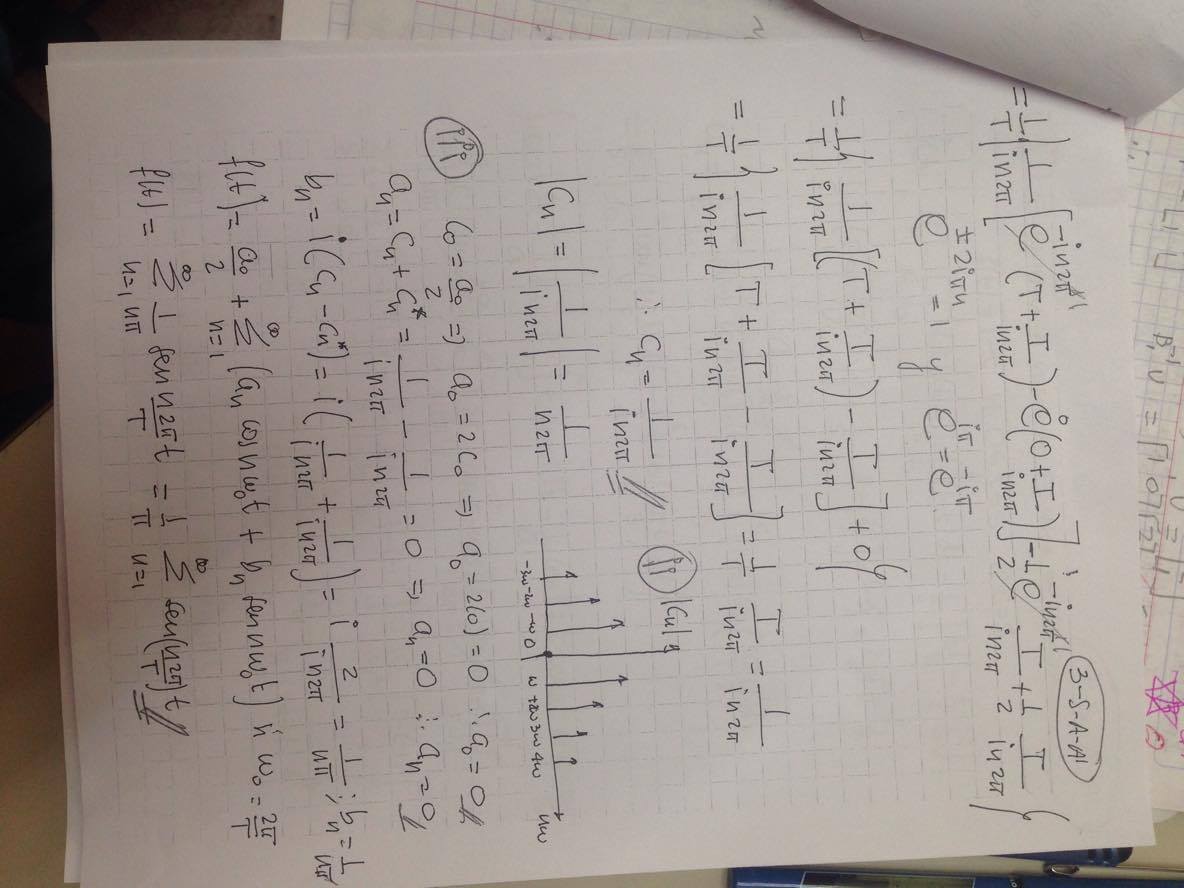 B₁⁻¹ U =
3-S-A-A'
= 1/T { 1/(in2π) [ e^(-in2π) (T + T/(in2π)) - e^0 (0 + T/(in2π)) ] - 1/2 e^(-in2π) T/(in2π) + 1/2 T/(in2π) }
e^(±2iπn) = 1 y e^(iπ) = e^(-iπ).
= 1/T { 1/(in2π) [ (T + T/(in2π)) - T/(in2π) ] + 0 }
= 1/T } 1/(in2π) [ T + T/(in2π) - T/(in2π) ] = 1/T T/(in2π) = 1/(in2π)
∴ Cn = 1/(in2π)
ii |Cn|
|Cn| = | 1/(in2π) | = 1/(n2π)
-3ω -2ω -ω 0 ω +2ω 3ω 4ω nω
iii C0 = a0/2 => a0 = 2C0 => a0 = 2(0) = 0 ∴ a0 = 0
an = Cn + Cn* = 1/(in2π) - 1/(in2π) = 0 => an = 0 ∴ an = 0
bn = i(Cn - Cn*) = i( 1/(in2π) + 1/(in2π) ) = i 2/(in2π) = 1/(nπ) ; bn = 1/(nπ)
f(t) = a0/2 + Σ_(n=1)^∞ (an cos nω0t + bn sen nω0t) ; ω0 = 2π/T
f(t) = Σ_(n=1)^∞ 1/(nπ) sen n2π/T t = 1/π Σ_(n=1)^∞ sen(n2π/T)t